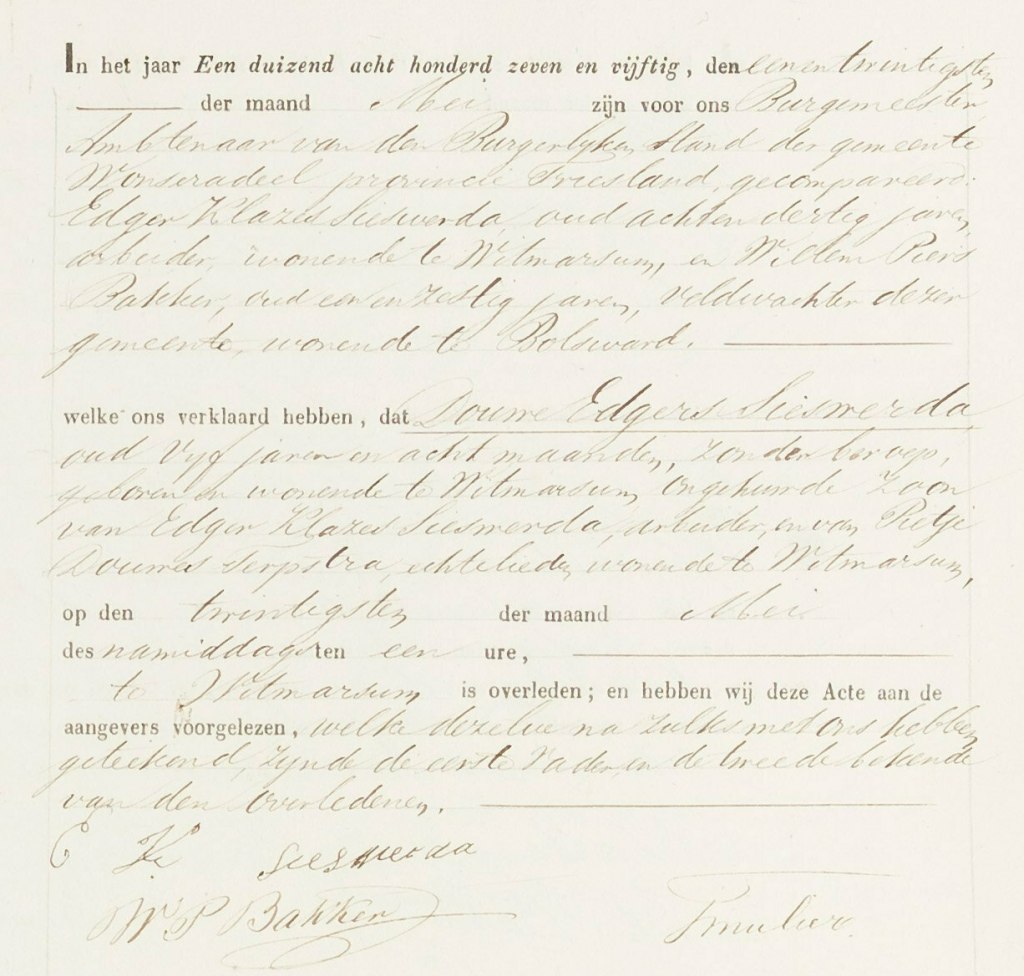 In het jaar Een duizend acht honderd zeven en vijftig, den een en twintigsten
der maand Mei zijn voor ons Burgemeester,
Ambtenaar van den Burgerlyken Stand der gemeente
Wonseradeel provincie Friesland, gecompareerd:
Edger Klazes Sieswerda, oud acht en dertig jaren,
arbeider, wonende te Witmarsum, en Willem Piers
Bakker, oud een en zestig jaren, veldwachter dezer
gemeente, wonende te Bolsward.
welke ons verklaard hebben, dat Douwe Edgers Sieswerda
oud Vyf jaren en acht maanden, zonder beroep,
geboren en wonende te Witmarsum, ongehuwde Zoon
van Edger Klazes Sieswerda, arbeider, en van Pietje
Douwes Terpstra, echtelieden wonende te Witmarsum,
op den twintigsten der maand Mei
des namiddags ten een ure,
te Witmarsum is overleden; en hebben wij deze Acte aan de
aangevers voorgelezen, welke dezelve na zulks met ons hebben
geteekend, zynde de eerste Vader, en de tweede bekende
van den overledenen.
E K Sieswerda
W P Bakker